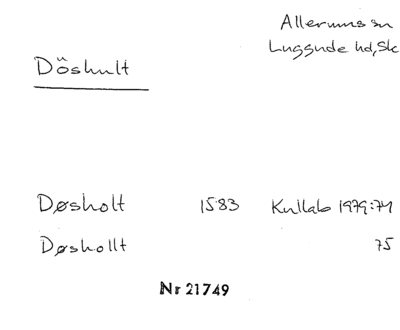 Allerums sn
Luggude hd, Sk
Döshult
Døsholt 1583 Kullab 1979:74
Døshollt 75
Nr 21749